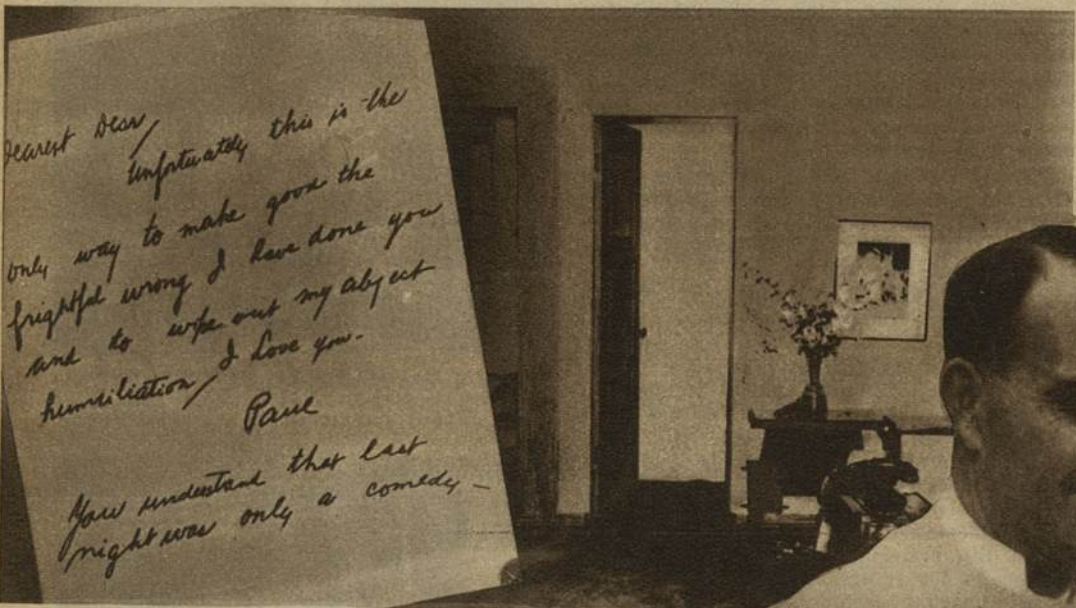 Dearest Dear,
Unfortunately this is the
only way to make good the
frightful wrong I have done you
and to wipe out my abject
humiliation, I love you.
Paul
You understand that last
night was only a comedy —